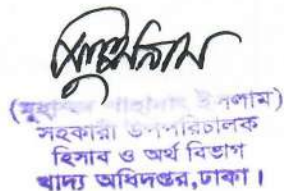 (মুহাম্মদ ইসলাম)
সহকারী উপপরিচালক
হিসাব ও অর্থ বিভাগ
খাদ্য অধিদপ্তর,ঢাকা।